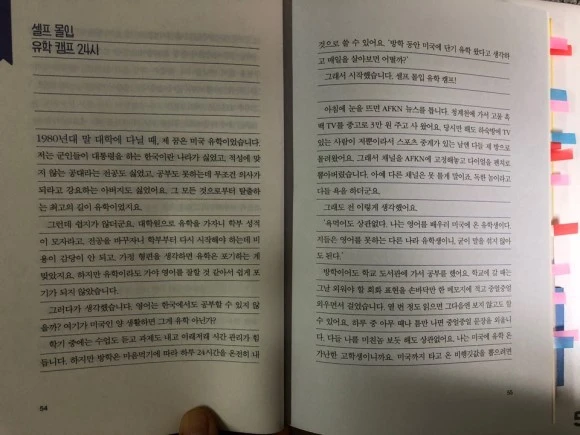 셀프 몰입
유학 캠프 24시
1980년대 말 대학에 다닐 때, 제 꿈은 미국 유학이었습니다.
저는 군인들이 대통령을 하는 한국이란 나라가 싫었고, 적성에 맞
지 않는 공대라는 전공도 싫었고, 공부도 못하는데 무조건 의사가
되라고 강요하는 아버지도 싫었어요. 그 모든 것으로부터 탈출하
는 최고의 길이 유학이었지요.
그런데 쉽지가 않더군요. 대학원으로 유학을 가자니 학부 성적
이 모자라고, 전공을 바꾸자니 학부부터 다시 시작해야 하는데 비
용이 감당이 안 되고, 가정 형편을 생각하면 유학은 포기하는 게
맞았지요. 하지만 유학이라도 가야 영어를 잘할 것 같아서 쉽게 포
기가 되지 않았습니다.
그러다가 생각했습니다. 영어는 한국에서도 공부할 수 있지 않
을까? 여기가 미국인 양 생활하면 그게 유학 아닌가?
학기 중에는 수업도 듣고 과제도 내고 이래저래 시간 관리가 힘
듭니다. 하지만 방학은 마음먹기에 따라 하루 24시간을 온전히 내
54
것으로 쓸 수 있어요. '방학 동안 미국에 단기 유학 왔다고 생각하
고 매일을 살아보면 어떨까?'
그래서 시작했습니다. 셀프 몰입 유학 캠프!
아침에 눈을 뜨면 AFKN 뉴스를 틉니다. 청계천에 가서 고물 흑
백 TV를 중고로 3만 원 주고 사 왔어요. 당시만 해도 하숙방에 TV
있는 사람이 저뿐이라서 스포츠 중계가 있는 날엔 다들 제 방으로
몰려왔어요. 그래서 채널을 AFKN에 고정해놓고 다이얼을 펜치로
뽑아버렸습니다. 아예 다른 채널은 못 틀게 말이죠. 독한 놈이라고
다들 욕을 하더군요.
그래도 전 이렇게 생각했어요.
'욕먹어도 상관없다. 나는 영어를 배우러 미국에 온 유학생이다.
저들은 영어를 못하는 다른 나라 유학생이니, 굳이 말을 섞지 않아
도 된다.'
방학때에도 학교 도서관에 가서 공부를 했어요. 학교에 갈 때는
그날 외워야 할 회화 표현을 손바닥만 한 메모지에 적고 중얼중얼
외우면서 걸었습니다. 열 번 정도 읽으면 그다음엔 보지 않고도 할
수 있어요. 하루 중 아무 때나 틈만 나면 중얼중얼 문장을 외웁니
다. 다들 나를 미친놈 보듯 해도 상관없어요. 나는 미국에 유학 온
가난한 고학생이니까요. 미국까지 타고 온 비행깃값을 뽑으려면
55